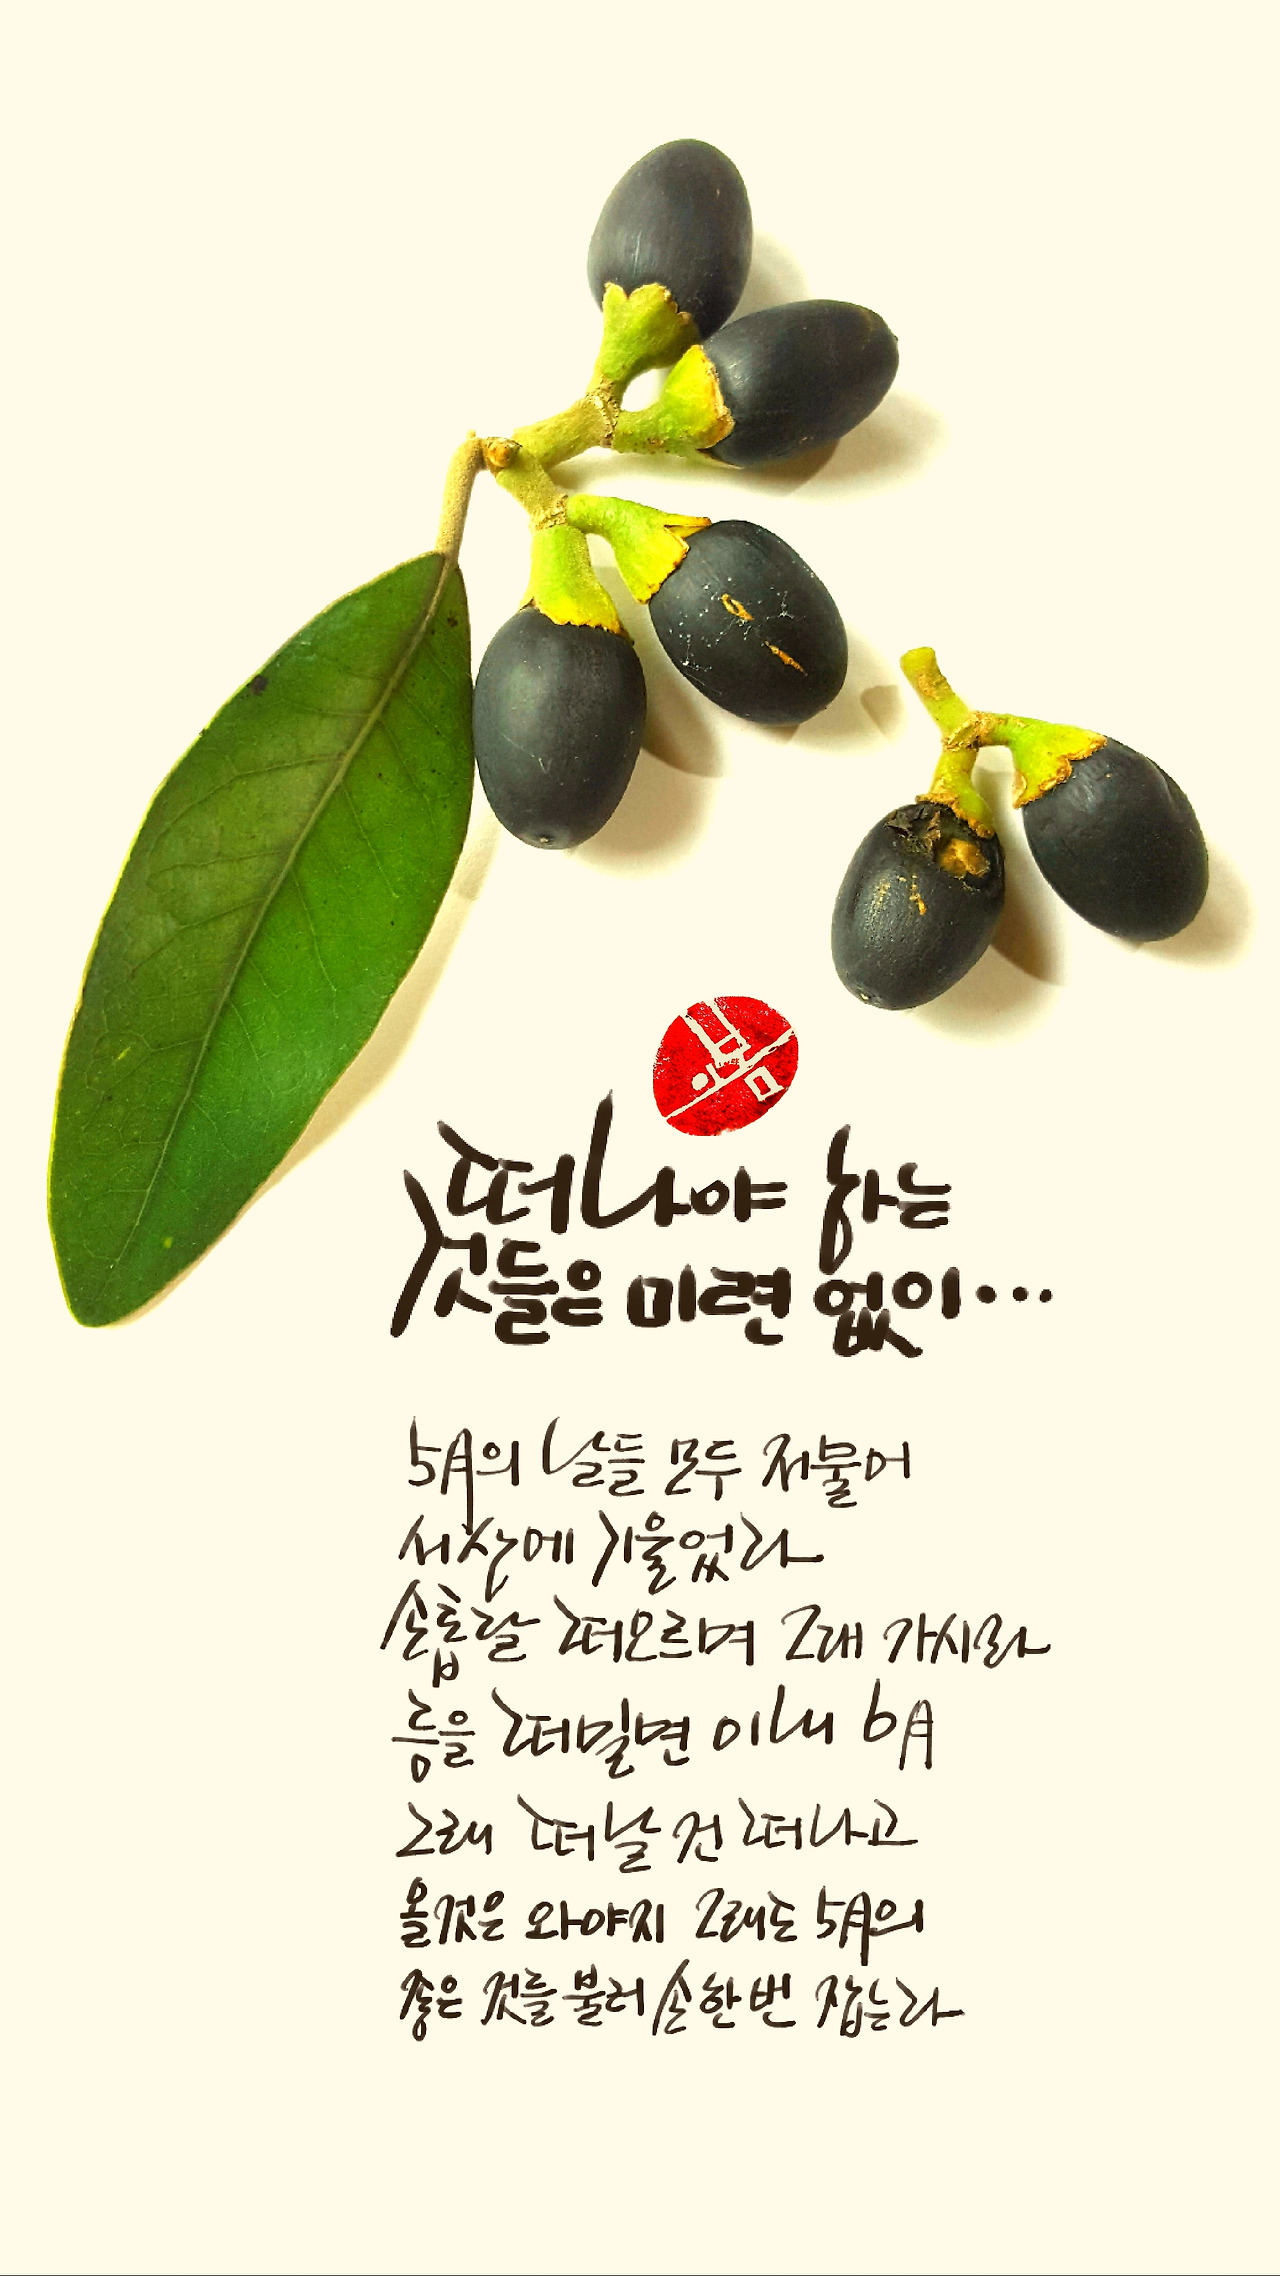 떠나야 하는
것들은 미련 없이...
5月의 날들 모두 저물어
서산에 기울었라
손톱달 떠오르며 그래 가시라
등을 떠밀면 이내 6月
그래 떠날 건 떠나고
올것은 와야지 그래도 5月의
좋은 것들 불러 손한번 잡는라